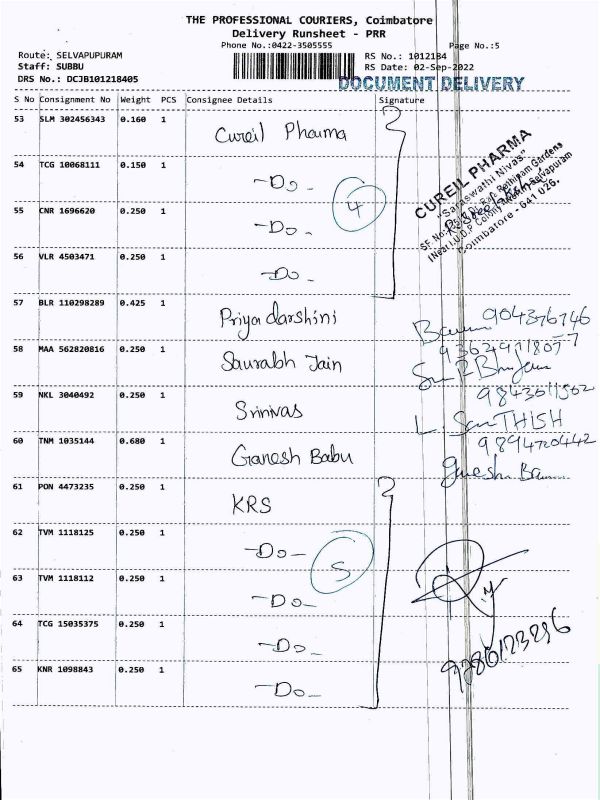 THE PROFESSIONAL COURIERS, Coimbatore
Delivery Runsheet - PRR
Phone No.:0422-3505555 Page No.:5
Route: SELVAPUPURAM RS No.: 1012184
Staff: SUBBU RS Date: 02-Sep-2022
DRS No.: DCJB101218405 DOCUMENT DELIVERY
S No Consignment No Weight PCS Consignee Details Signature
53 SLM 302456343 0.160 1 Cureil Pharma
CUREIL PHARMA
"Saraswathi Nivas"
54 TCG 10068111 0.150 1 -Do-
4
(Near I.U.D.P Colony) Selvapuram
Coimbatore - 641 026.
55 CNR 1696620 0.250 1 -Do-
56 VLR 4503471 0.250 1 -Do-
57 BLR 110298289 0.425 1 Priya darshini
904376746
58 MAA 562820816 0.250 1 Saurabh Jain
59 NKL 3040492 0.250 1 Srinivas
9843011502
L. SanTHISH
60 TNM 1035144 0.680 1 Ganesh Babu
9894720442
61 PON 4473235 0.250 1 KRS
62 TVM 1118125 0.250 1 -Do-
5
63 TVM 1118112 0.250 1 -Do-
64 TCG 15035375 0.250 1 -Do-
65 KNR 1098843 0.250 1 -Do-